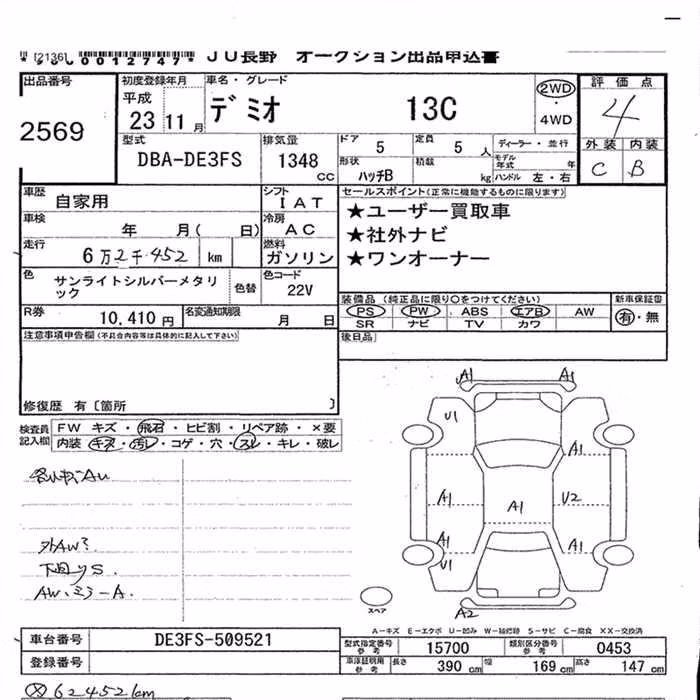 [2136] 00012747 JU長野 オークション出品申込書
出品番号
2569
初度登録年月
平成
23 11 月
車名・グレード
デミオ 13C
2WD
・
4WD
評価点
4
外装 内装
C B
型式
DBA-DE3FS
排気量
1348
cc
ドア
5
定員
5 人
形状
ハッチB
積載
kg
ディーラー・並行
モデル年式 年
ハンドル 左・右
車歴
自家用
シフト
IAT
車検
年 月( 日)
冷房
AC
走行
6万2千452 km
燃料
ガソリン
色
サンライトシルバーメタリ
ック
色替
色コード
22V
R券
10,410 円
名変通知期限
月 日
セールスポイント(正常に機能するものに限ります)
★ユーザー買取車
★社外ナビ
★ワンオーナー
装備品(純正品に限り○をつけてください)
PS PW ABS エアB AW
SR ナビ TV カワ
新車保証書
有・無
後日品
注意事項申告欄(不具合内容等は具体的に記入して下さい)
修復歴 有〔箇所 〕
検査員
記入欄
FW キズ・飛石・ヒビ割・リペア跡・×要
内装 キズ・汚レ・コゲ・穴・スレ・キレ・破レ
外AW?
下回りS
AW・ミラーA.
A1 A1
U1
A1
A1 A1 U2
A1 A1
U1
A2
スペア
A−キズ E−エクボ U−凹み W−補修跡 S−サビ C−腐食 XX−交換済
車台番号
DE3FS-509521
登録番号
型式指定番号
参考
15700
類別区分番号
参考
0453
車庫証明用
参考
長さ 390 cm
幅 169 cm
高さ 147 cm
62452km